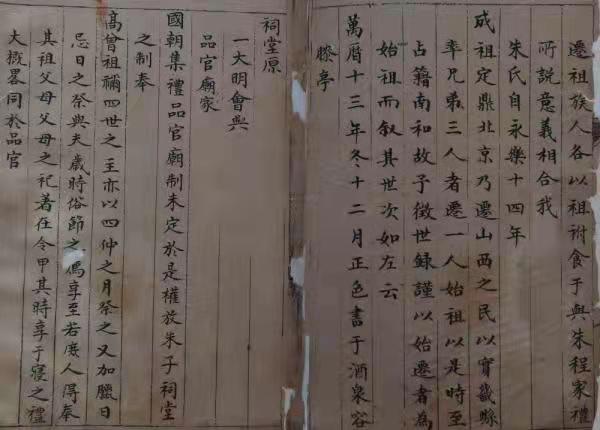 遷祖族人各以祖祔食于與朱程家禮
所説意義相合我
朱氏自永樂十四年
成祖定鼎北京乃遷山西之民以實畿縣
率兄弟三人者遷一人始祖以是時至
占籍南和故予徵世録謹以始遷者為
始祖而叙其世次如左云
萬曆十三年冬十二月正色書于酒泉容
膝亭
祠堂原
一大明會典
品官廟家
國朝集禮品官廟制未定於是權放朱子祠堂
之制奉
高曾祖禰四世之主亦以四仲之月祭之又加臘日
忌日之祭與夫歲時俗節之薦享至若庶人得奉
其祖父母父母之祀著在令甲其時享于寢之禮
大概畧同於品官